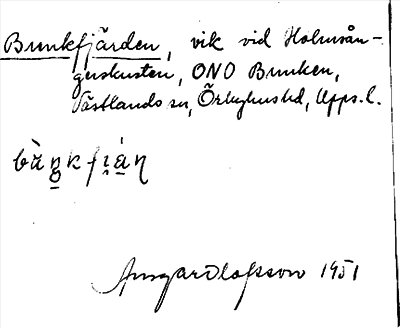 Bunkfjärden, vik vid Holmsån-
guskusten, ONO Bunken,
Västlands sn, Örbyhus hd, Upps. l.
Ansgar Olofsson 1951